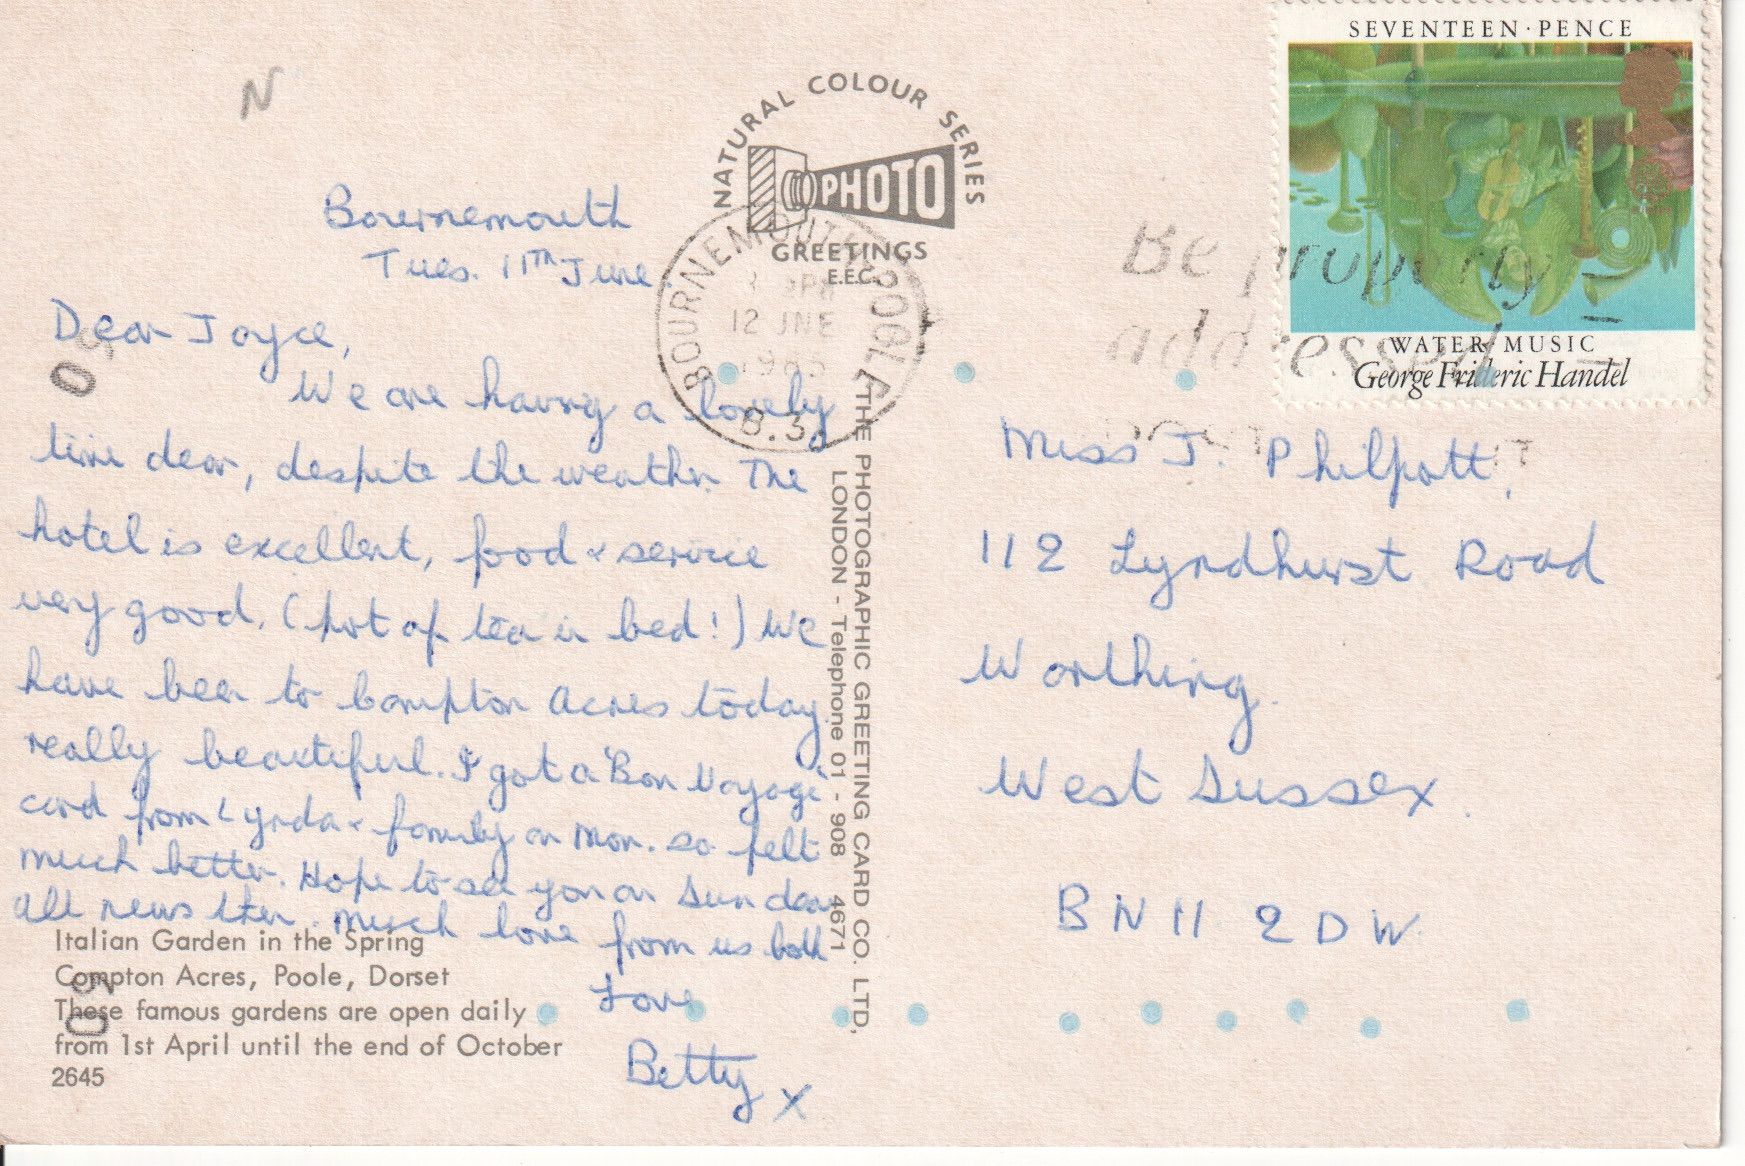 N
SEVENTEEN · PENCE
WATER MUSIC
George Frideric Handel
NATURAL COLOUR SERIES
PHOTO
GREETINGS
E.E.C.
BOURNEMOUTH POOLE
12 JNE
B.3.
Be properly
addressed
Bournemouth
Tues. 11th June
Dear Joyce,
We are having a lovely
time dear, despite the weather. The
hotel is excellent, food & service
very good. (pot of tea in bed!) We
have been to Compton Acres today
really beautiful. I got a 'Bon Voyage'
card from Lynda & family on Mon. so felt
much better. Hope to see you on Sun dear
all news then. Much love from us both
Love
Betty x
THE PHOTOGRAPHIC GREETING CARD CO. LTD,
LONDON - Telephone 01 - 908 4671
Miss J. Philpott,
112 Lyndhurst Road
Worthing.
West Sussex.
BN11 2DW
Italian Garden in the Spring
Compton Acres, Poole, Dorset
These famous gardens are open daily
from 1st April until the end of October
2645